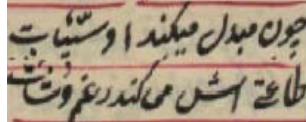 چون مبدل میکند او سیّئات
طاعتی اش می کند رغم وشات